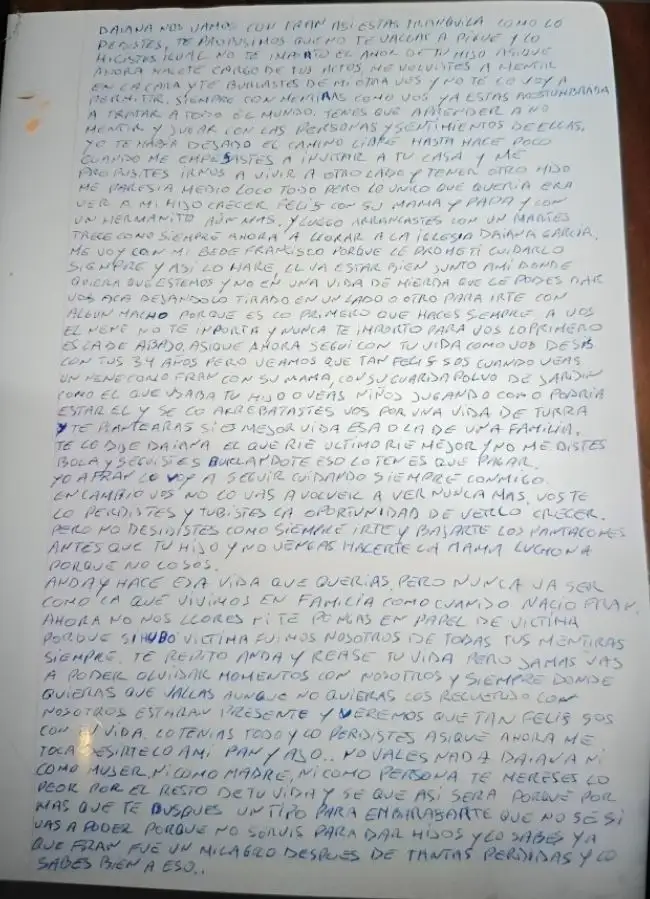 DAIANA NOS VAMOS CON FRAN ASI ESTAS TRANQUILA COMO LO
PEDISTES, TE PEDISSIMOS QUE NO TE VALLAS A PIQUE Y LO
HICISTES IGUAL NO TE IMPORTO EL AMOR DE TU HIJO ASIQUE
AHORA HACETE CARGO DE TUS ACTOS. ME VOLVISTES A MENTIR
EN LA CARA Y TE BURLASTES DE MI OTRA VOS Y NO TE LO VOY A
PERMITIR. SIEMPRE CON MENTIRAS COMO VOS YA ESTAS ACOSTUMBRADA
A TRATAR A TODO EL MUNDO. TENES QUE APRENDER A NO
MENTIR Y JUGAR CON LAS PERSONAS Y SENTIMIENTOS DE ELLAS.
YO TE HABIA DEJADO EL CAMINO LIBRE HASTA HACE POCO
CUANDO ME EMPESASTES A INVITAR A TU CASA Y ME
PROPUSISTES IRNOS A VIVIR A OTRO LADO Y TENER OTRO HIJO
ME PARESIA MEDIO LOCO TODO PERO LO UNICO QUE QUERIA ERA
VER A MI HIJO CRECER FELIS CON SU MAMA Y PAPA Y CON
UN HERMANITO AUN MAS. Y LUEGO ARRANCASTES CON UN MARTES
TRECE COMO SIEMPRE AHORA A LLORAR A LA IGLESIA DAIANA GARCIA.
ME VOY CON MI BEBE FRANCISCO PORQUE LE PROMETI CUIDARLO
SIEMPRE Y ASI LO HARE, EL VA ESTAR BIEN JUNTO AMI DONDE
QUIERA QUE ESTEMOS Y NO EN UNA VIDA DE MIERDA QUE LE PODES DAR
VOS ACA DEJANDOLO TIRADO EN UN LADO O OTRO PARA IRTE CON
ALGUN MACHO PORQUE ES LO PRIMERO QUE HACES SIEMPRE. A VOS
EL NENE NO TE IMPORTA Y NUNCA TE IMPORTO PARA VOS LO PRIMERO
ES LA DE ABAJO. ASIQUE AHORA SEGUI CON TU VIDA COMO VOS DESIS
CON TUS 34 AÑOS PERO VEAMOS QUE TAN FELIS SOS CUANDO VEAS
UN NENE COMO FRAN CON SU MAMA, CON SU GUARDAPOLVO DE JARDIN
COMO EL QUE USABA TU HIJO O VEAS NIÑOS JUGANDO COMO PODRIA
ESTAR EL Y SE LO ARREBATASTES VOS POR UNA VIDA DE TURRA
Y TE PLANTEARAS SI ES MEJOR VIDA ESA O LA DE UNA FAMILIA.
TE LO DIJE DAIANA EL QUE RIE ULTIMO RIE MEJOR Y NO ME DISTES
BOLA Y SEGUISTES BURLANDOTE ESO LO TENES QUE PAGAR.
YO A FRAN LO VOY A SEGUIR CUIDANDO SIEMPRE CONMIGO.
EN CAMBIO VOS NO LO VAS A VOLVER A VER NUNCA MAS, VOS TE
LO PERDISTES Y TUBISTES LA OPORTUNIDAD DE VERLO CRECER.
PERO NO DESIDISTES COMO SIEMPRE IRTE Y BAJARTE LOS PANTALONES
ANTES QUE TU HIJO Y NO VENGAS HACERTE LA MAMA LUCHONA
PORQUE NO LO SOS.
ANDA Y HACE ESA VIDA QUE QUERIAS, PERO NUNCA VA SER
COMO LA QUE VIVIMOS EN FAMILIA COMO CUANDO NACIO FRAN.
AHORA NO NOS LLORES NI TE PONGAS EN PAPEL DE VICTIMA
PORQUE SI HUBO VICTIMA FUIMOS NOSOTROS DE TODAS TUS MENTIRAS
SIEMPRE. TE REPITO ANDA Y REASE TU VIDA PERO JAMAS VAS
A PODER OLVIDAR MOMENTOS CON NOSOTROS Y SIEMPRE DONDE
QUIERAS QUE VALLAS AUNQUE NO QUIERAS LOS RECUERDO CON
NOSOTROS ESTARAN PRESENTE Y VEREMOS QUE TAN FELIS SOS
CON TU VIDA. LO TENIAS TODO Y LO PERDISTES ASIQUE AHORA ME
TOCA DESIRTELO AMI PAN Y AJO.. NO VALES NADA DAIANA NI
COMO MUJER, NI COMO MADRE, NI COMO PERSONA TE MERESES LO
PEOR POR EL RESTO DE TU VIDA Y SE QUE ASI SERA PORQUE POR
MAS QUE TE BUSQUES UN TIPO PARA EMBARASARTE QUE NO SE SI
VAS A PODER PORQUE NO SERVIS PARA DAR HIJOS Y LO SABES YA
QUE FRAN FUE UN MILAGRO DESPUES DE TANTAS PERDIDAS Y LO
SABES BIEN A ESO..